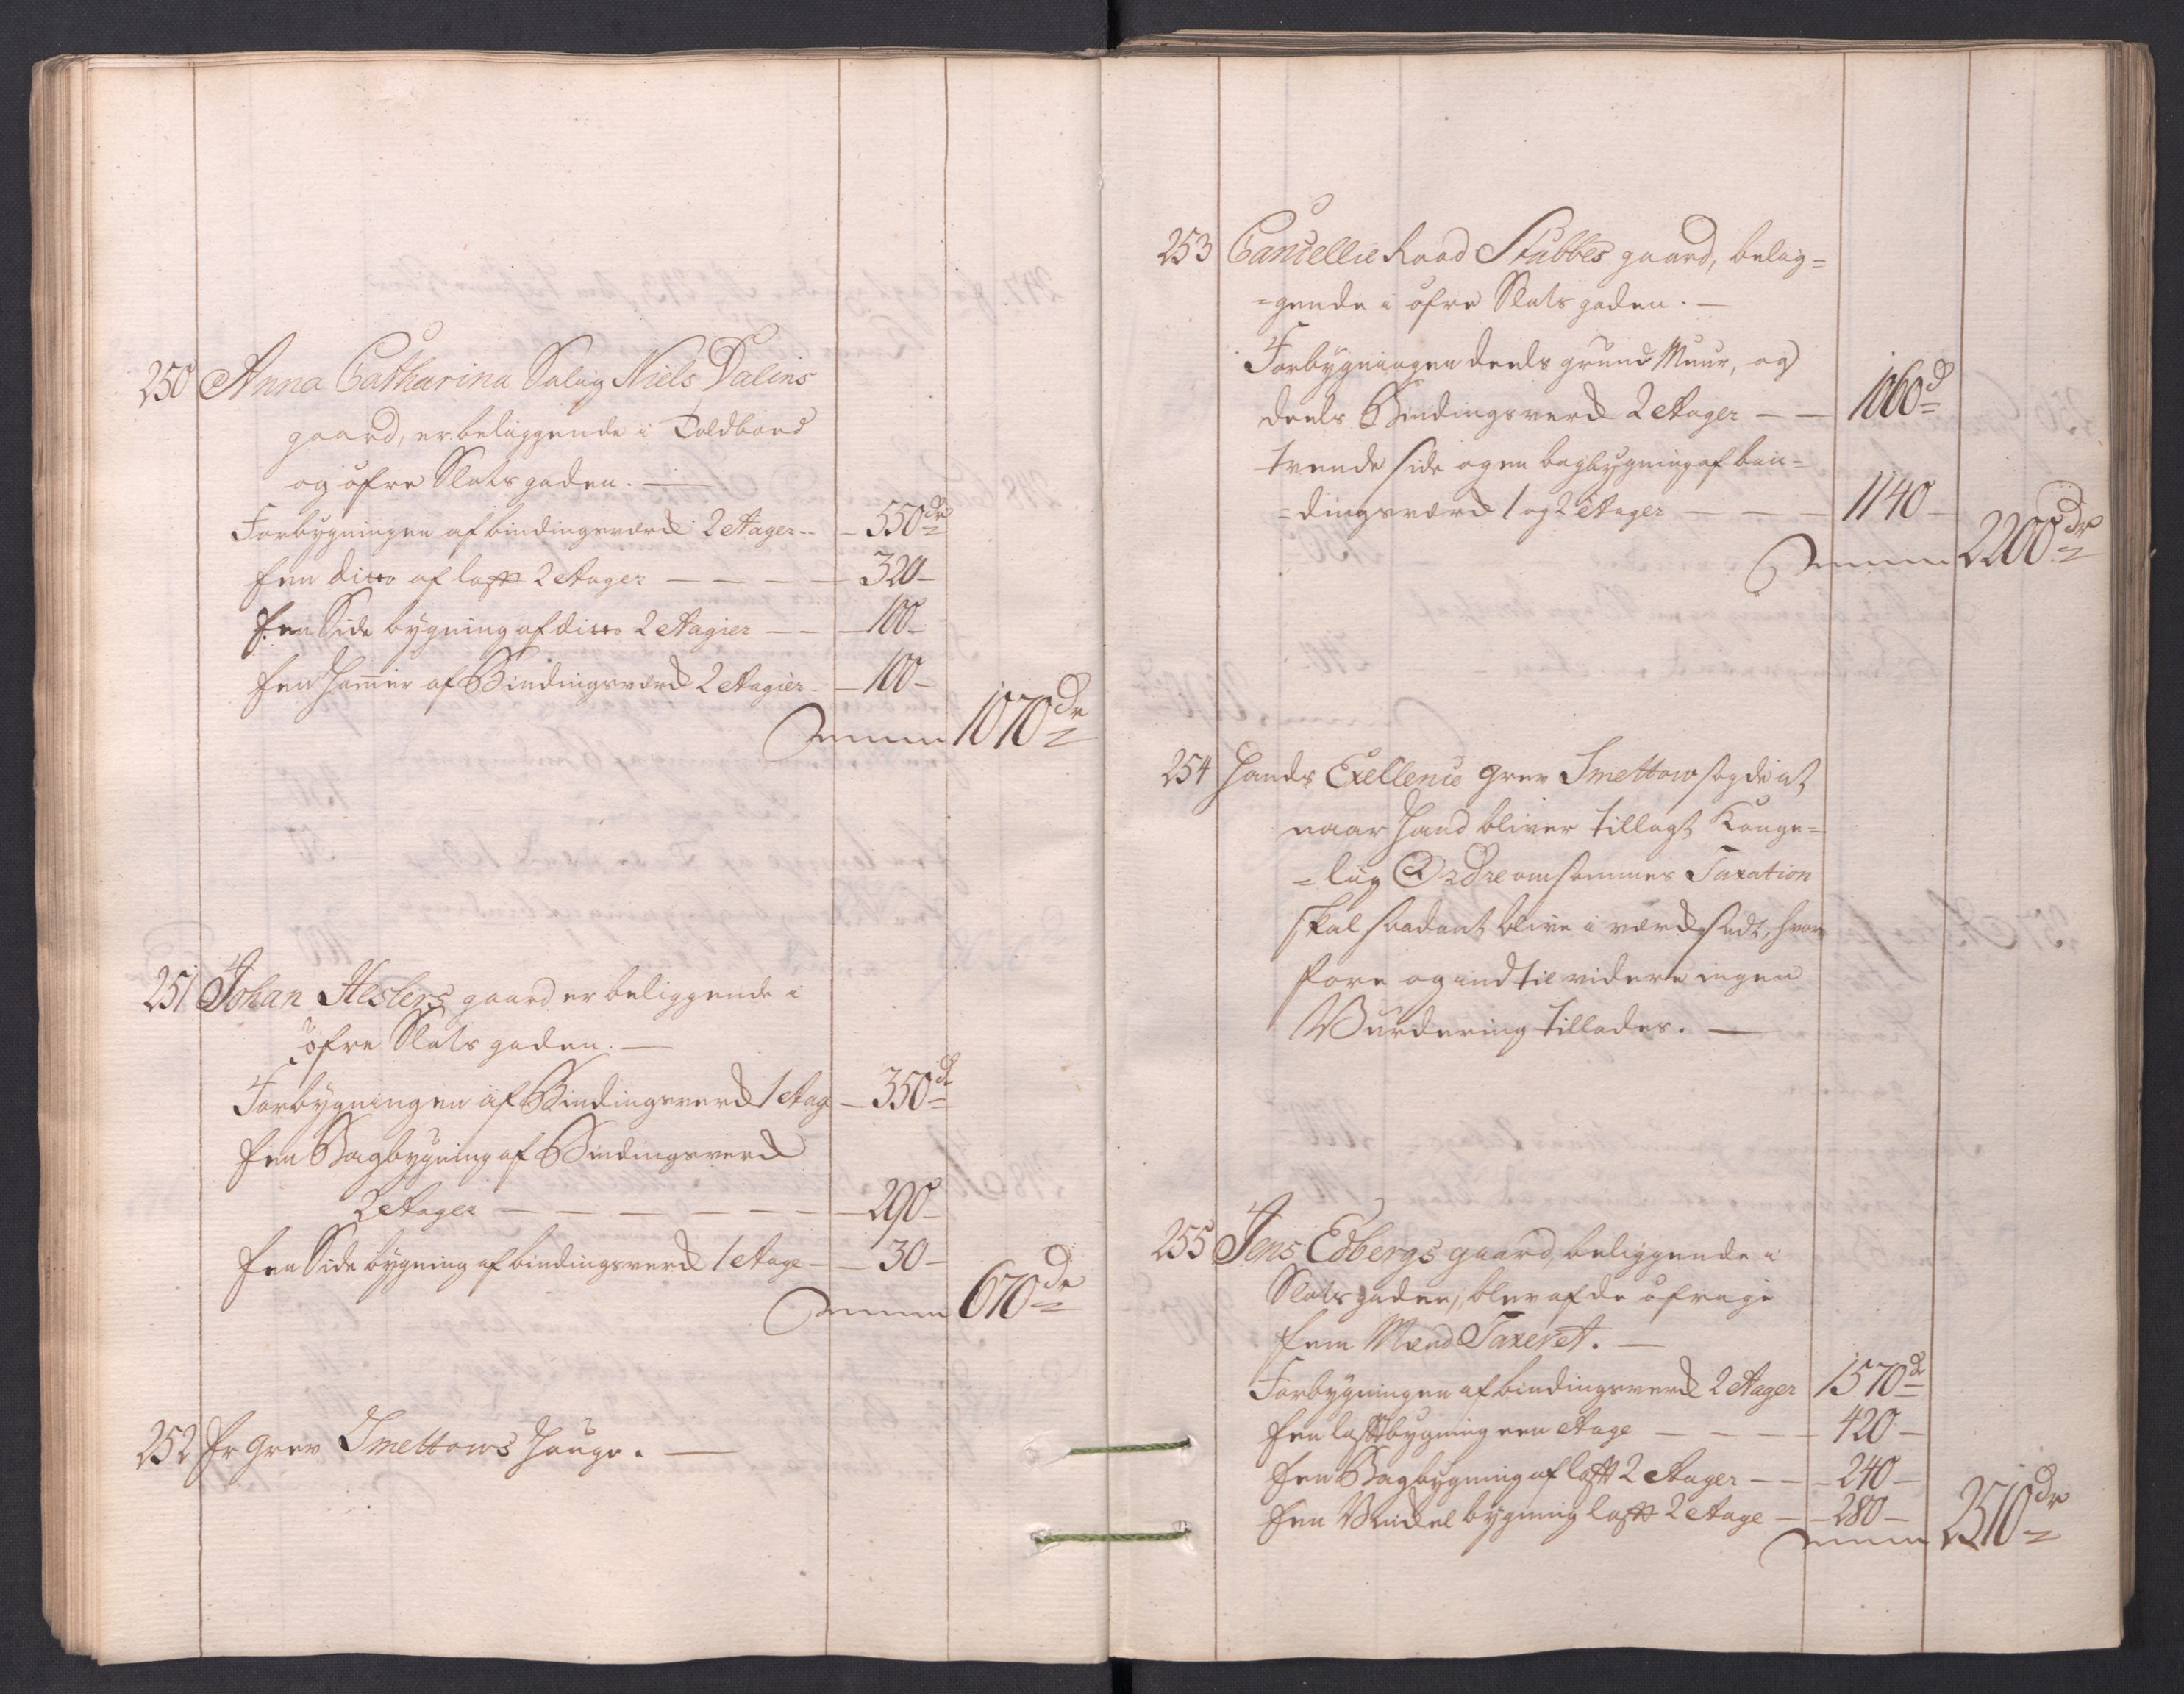 250 Anna Catharina Salig Niels Dalins
gaard, er beliggende i Toldbord
og öfre Slotsgaden. —
Forbygningen af bindingsværk 2 Etager — 550 dr
Een ditto af laft 2 Etager — 320 —
Een Side bygning af ditto 2 Etagier — 100 —
Een Hamer af Bindingsværk 2 Etagier — 100 —
Summa 1070 dr
251 Johan Heslers gaard er beliggende i
öfre Slotsgaden. —
Forbygningen af Bindingsverk 1 Etag — 350 dr
Een Bagbygning af Bindingsverk
2 Etager — 290 —
Een Side bygning af bindingsverk 1 Etage — 30 —
Summa 670 dr
252 Hr Grev Smettows Hauge. —
253 Cancellie Raad Stubbes gaard, belig=
=gende i öfre Slotsgaden. —
Forbygningen deels grund Muur, og
deels Bindingsverk 2 Etager — 1060 d
trende side og en bagbygning af bin=
=dingsværk 1 og 2 Etager — 1140 —
Summa 2200 dr
254 Hands Exellence Grev Smettow sagde at,
naar Hand bliver tillagt Konge=
=lig Ordre om sammes Taxation
skal saadant blive i værk sadt, hvor
fore og ind til videre ingen
Vurdering tillades. —
255 Jens Edbergs gaard, beliggende i
Slotsgaden, blev af de öfrige
fem Mænd Taxeret. —
Forbygningen af bindingsverk 2 Etager 1570 dr
Een laftebygning een Etage — 420 —
Een Bagbygning af laft 2 Etager — 240 —
Een bygning laft 2 Etage — 280 —
Summa 2510 dr